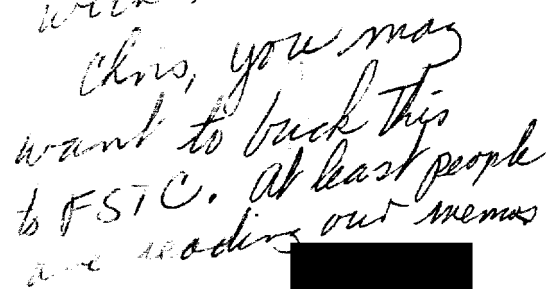 Chris, you may
want to buck this
to FSTC. At least people
are reading our memos